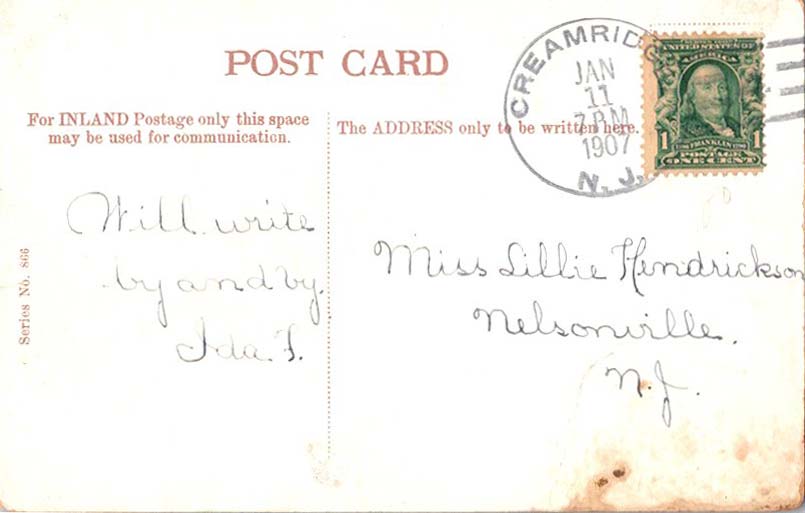 POST CARD
For INLAND Postage only this space
may be used for communication.
The ADDRESS only to be written here.
CREAMRIDGE
JAN
11
7 P.M.
1907
N. J.
UNITED STATES OF
AMERICA
1 FRANKLIN 1
POSTAGE
ONE CENT
Series No. 866
Will write
by and by.
Ida. F.
Miss Lillie Hendrickson
Nelsonville.
N. J.